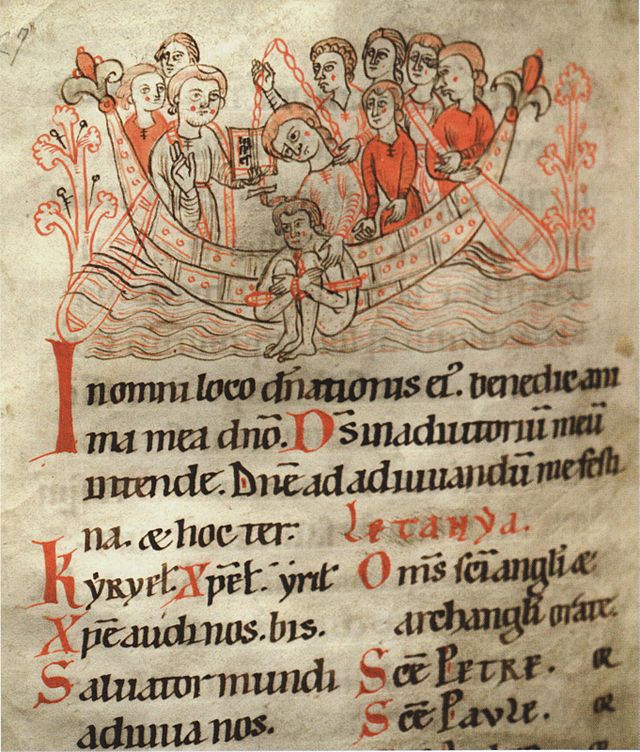 I n omni loco dñationis ei⁹. benedic ani
ma mea dño. D̅s in adiutoriũ meũ
intende. Dñe ad adiuuandũ me festi
na. & hoc ter. Letanya.
Kyryel̅. Xp̅el̅. yril̅
Xp̅e audi nos. bis.
Saluator mundi
adiuua nos.
Om̅s sc̅i angl̅i &
archangl̅i orate.
Sc̅e PETRE. or
Sc̅e Paule. or